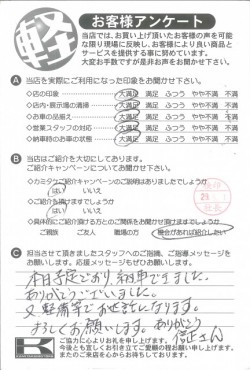 軽
お客様アンケート
当店では、お買い上げ頂いたお客様の声を可能
な限り現場に反映し、お客様により良い商品と
サービスを提供する事に努めています。
大変お手数ですが是非お声をお聞かせ下さい。
A 当店を実際にご利用になった印象をお聞かせ下さい。
◇店の印象 大満足 満足 ふつう やや不満 不満
◇店内・展示場の清掃 大満足 満足 ふつう やや不満 不満
◇お車の品揃え 大満足 満足 ふつう やや不満 不満
◇営業スタッフの対応 大満足 満足 ふつう やや不満 不満
◇納車時のお車の状態 大満足 満足 ふつう やや不満 不満
B 当店はご紹介を大切にしております。
ご紹介キャンペーンについてお聞かせ下さい。
◇カミタウご紹介キャンペーンのご説明はありましたでしょうか
はい いいえ
◇ご紹介を頂けますでしょうか
はい いいえ
◇具体的にご紹介頂ける方とのご関係をお聞かせ頂けますでしょうか
ご親族 ご友人 職場の方 機会があれば紹介したい
C 担当させて頂きましたスタッフへのご指摘、ご指導メッセージを
お願いします。応援メッセージもぜひお願いします。
本日予定どおり、納車できました。
ありがとうございました。
又、軽痛等でお世話になります。
よろしくお願いします。ありがとう
K
ご協力に心よりお礼を申し上げます。
今後とも宜しくお引き立てご愛顧の程お願い申し上げます。
またのご来店を心からお待ちしております。